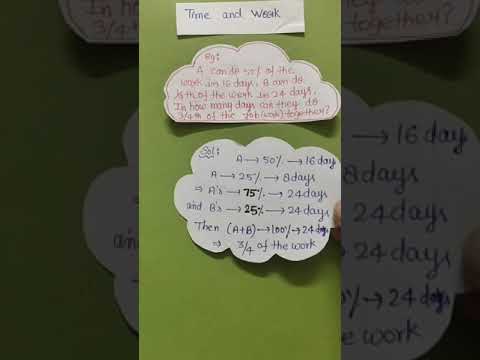 Time and Work
Eg:
A can do 50% of the
work in 16 days, B can do
1/4 th of the work in 24 days.
In how many days can they do
3/4 th of the Job(work) together?
Sol:
A → 50% → 16 days
A → 25% → 8 days
⇒ A's → 75% → 24 days
and B's → 25% → 24 days
Then (A+B) → 100% → 24 days
⇒ 3/4 of the work